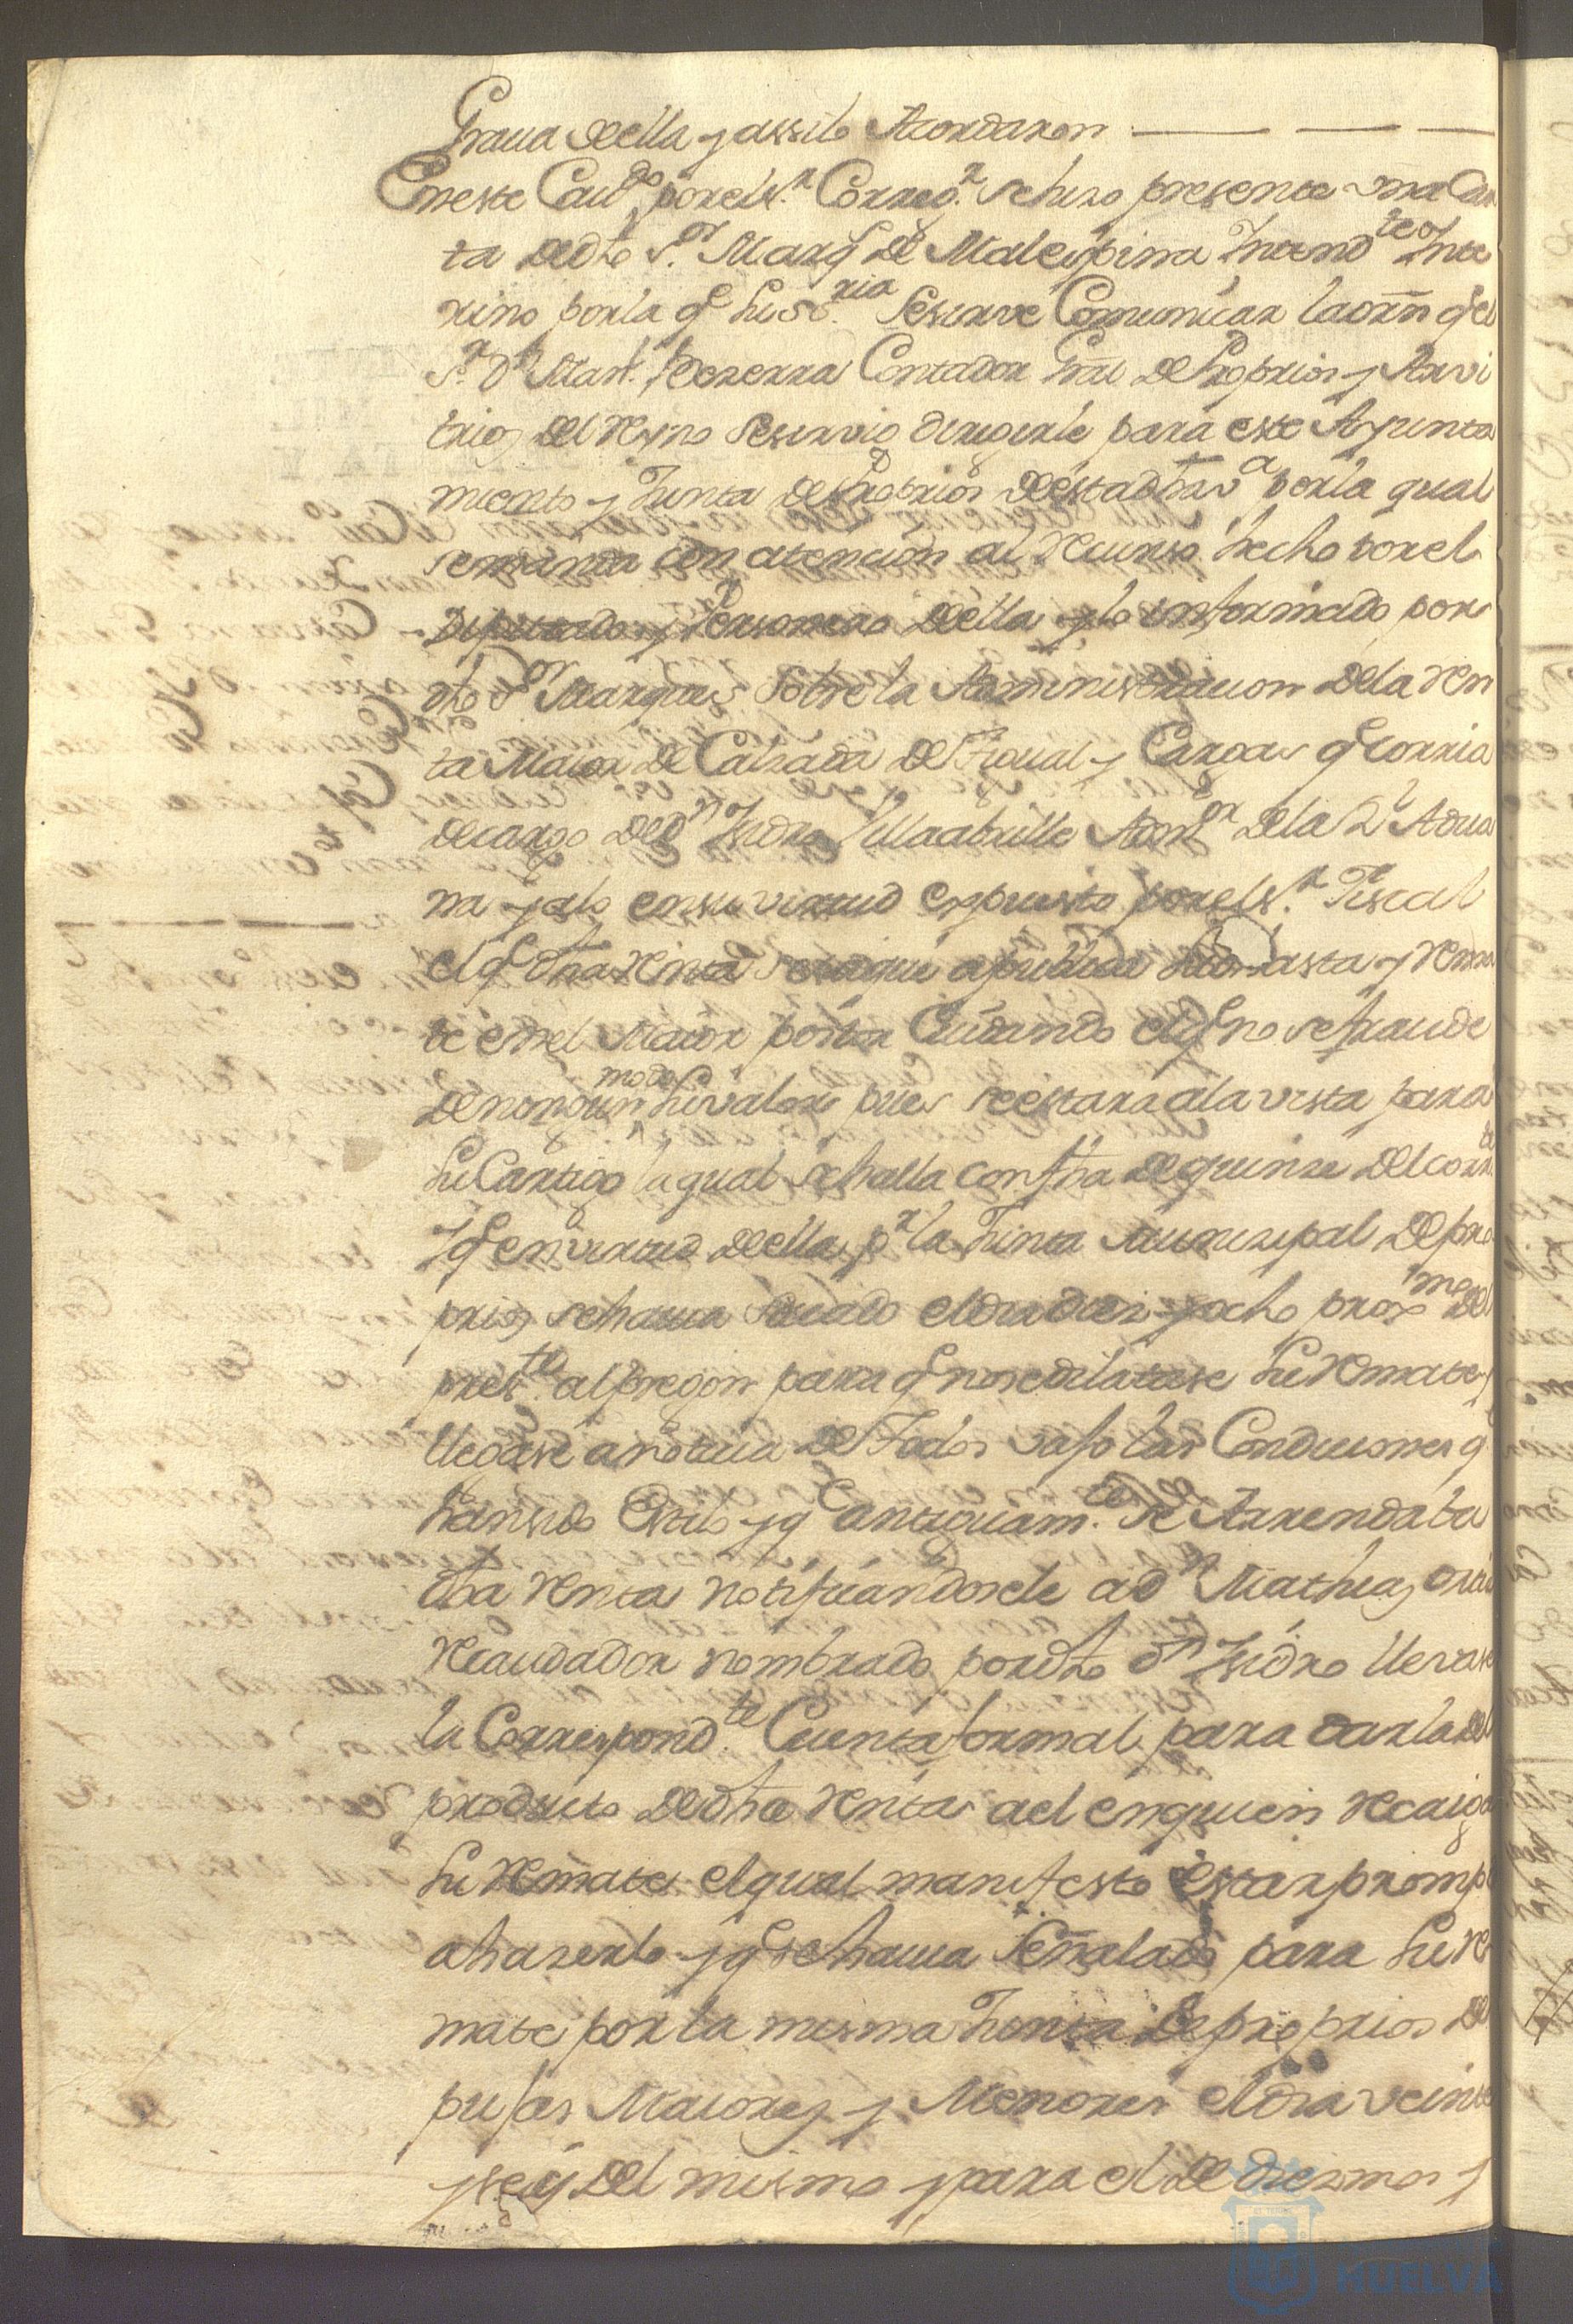 Graua della y assi lo Acordaron
En este Caudo. por el Sr. Correxr. se hizo presente vna Car
ta de dho Sr. Marqs de Malespina Intendte Inte
rino por la q Su Sria se sirve Comunicar la orn q el
Sr. Dn Manl. Bezerra Contador Gral de Proprios y Arvi
trios del Reyno se sirvio dirigirle para este Ayunta
miento y Junta de Proprios de esta dha va por la qual
se manda con atencion al Recurso hecho por el
Diputado y Personero della y lo informado por
dho Sor Marques sobre la Administracion dela Ren
ta Maior de Calzada de Frual y Cargas q corria
de cargo de Dn Isidro Villaabrille Admor dela Rl Adua
na y a lo en su virtud expuesto por el Sr. Fiscal
el q dha Renta se saque a publica subhasta y Rema
te en el maior postor Cuidando el q no se fraude
de ningun modo su valor pues se estara a la vista para
su Castigo la qual se halla con fha de quinze del corrte
y q en virtud della pr la Junta Municipal de pro
prios se hauia sacado el dia diez y ocho proxmo del
preste. al pregon para q no se dilatase su Remate y
llegase a noticia de Todos vajo las Condiciones q
han sido Estilo y q antiguamte. se Arrendaba
dha Renta notificandosele a Dn Mathias
Recaudador nombrado por dho Dn Isidro llevase
la Correspondte Cuenta formal para darla del
producto de dha Renta a el en quien Recaiga
su Remate el qual manifesto estar prompto
a hazerlo y q se hauia señalado para su Re
mate por la misma Junta de proprios de
pujas Maiores y Menores el dia veinte
y seis del mismo y para el de diezmos y
HUELVA